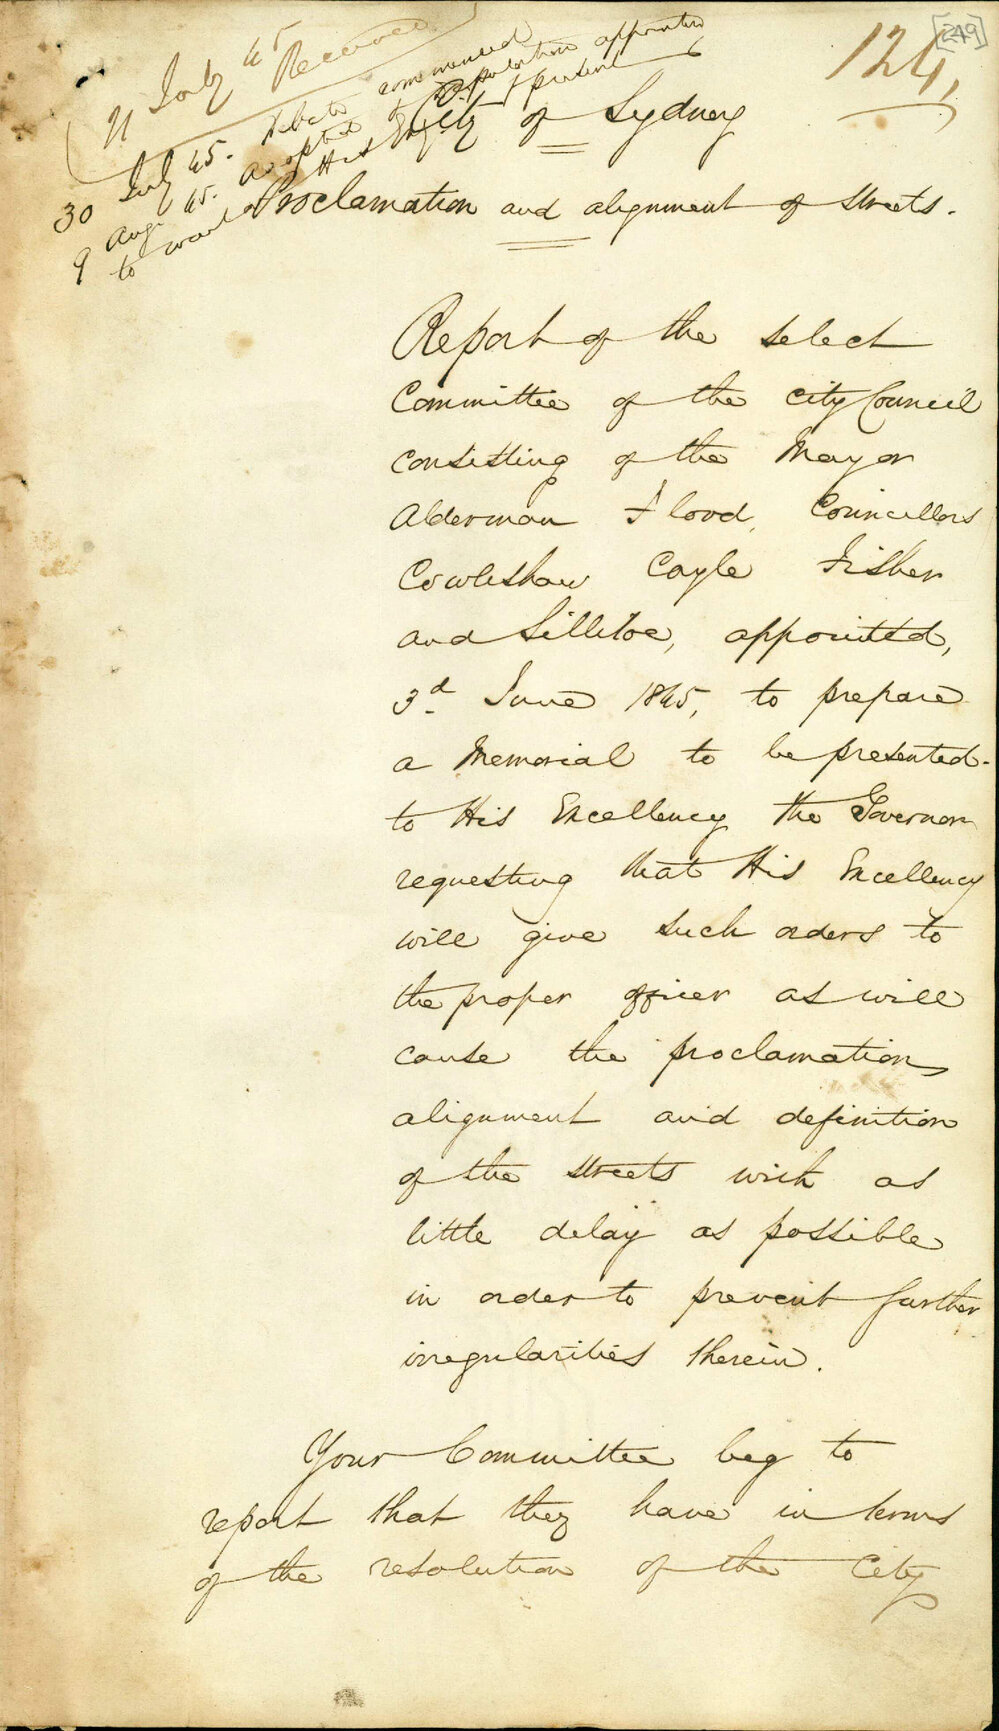 [249]
124,
11 July 45 Received
30 July 45. Debate commenced
9 Aug 45. adopted & Deputation appointed
to wait on His Excy & present
City of Sydney
Proclamation and alignment of Streets.
Report of the select
Committee of the City Council
consisting of the Mayor
Alderman Flood, Councillors
Cowlishaw Coyle Fisher
and Sillitoe, appointed,
3d June 1845, to prepare
a Memorial to be presented
to His Excellency the Governor
requesting that His Excellency
will give such orders to
the proper officer as will
cause the proclamation
alignment and definition
of the streets with as
little delay as possible
in order to prevent further
irregularities therein.
Your Committee beg to
report that they have in terms
of the resolution of the City